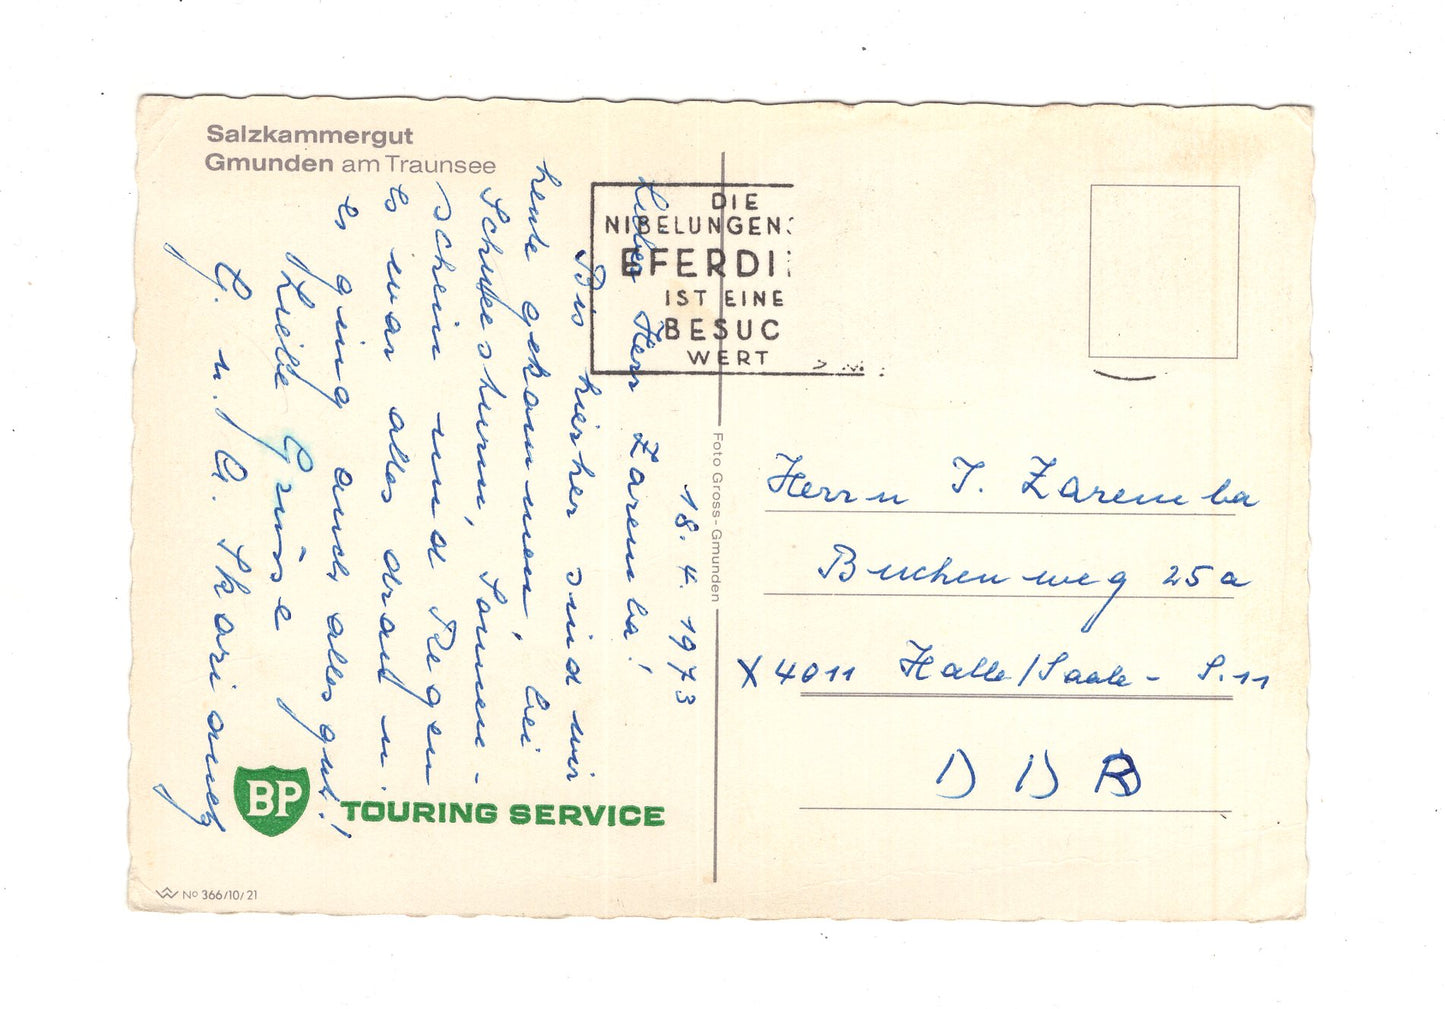 Salzkammergut
Gmunden am Traunsee
DIE
NIBELUNGEN
EFERDI
IST EINE
BESUC
WERT
18. 4. 1973
Lieber Herr Zaremba!
Bis hierher sind wir
heute gekommen, bei
Schneesturm, Sonnen-
schein und Regen
Es war alles dran u.
es ging auch alles gut!
Liebe Grüsse
G. u. G.
Foto Gross-Gmunden
Herrn J. Zaremba
Buchenweg 25a
X 4011 Halle/Saale - S.11
DDR
BP TOURING SERVICE
No 366/10/21